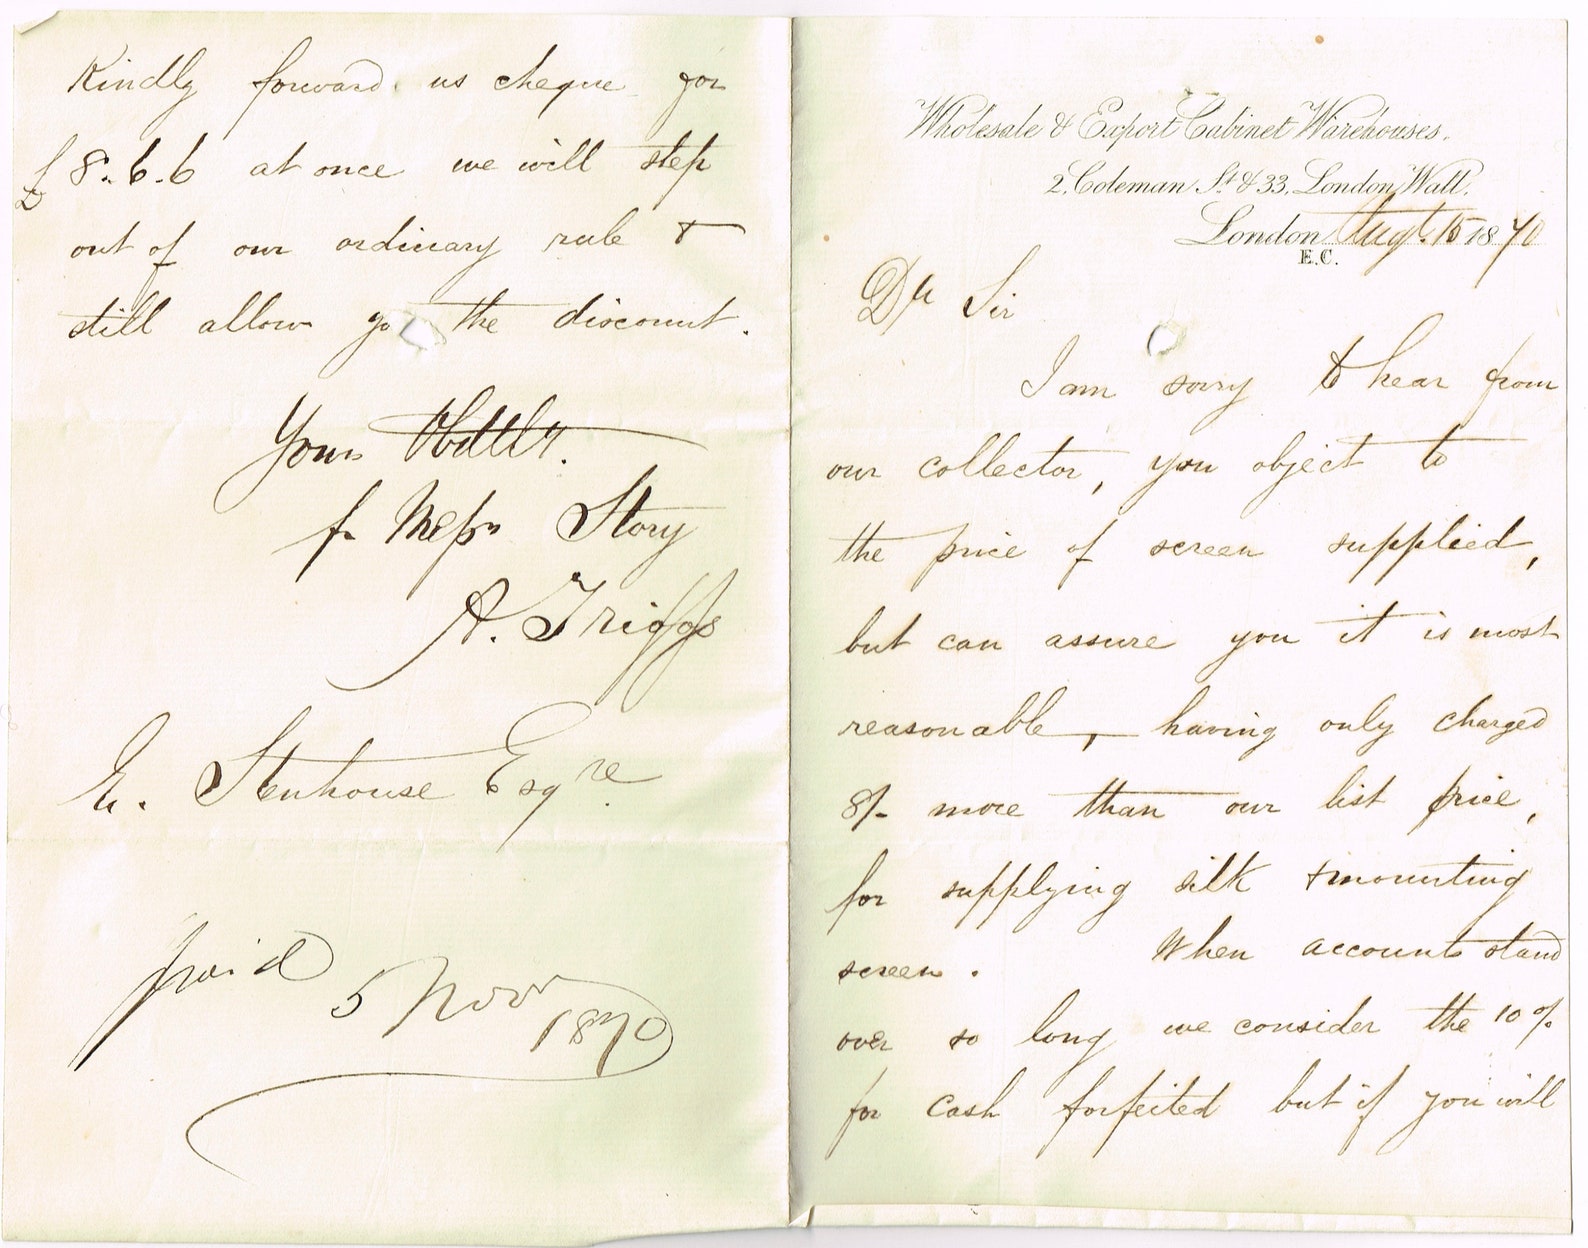 Wholesale & Export Cabinet Warehouses.
2, Coleman St. & 33, London Wall.
London Augt. 15 1870
E.C.
Dr Sir
I am sorry to hear from
our collector, you object to
the price of screen supplied,
but can assure you it is most
reasonable, having only charged
8/- more than our list price,
for supplying silk & mounting
screen. When accounts stand
over so long we consider the 10%
for cash forfeited but if you will
Kindly forward us cheque for
£8.6.6 at once we will step
out of our ordinary rule &
still allow yo the discount.
Yours
fr Messrs Story
A. Triggs
E. Stenhouse Esqre.
paid 5 Novr
1870